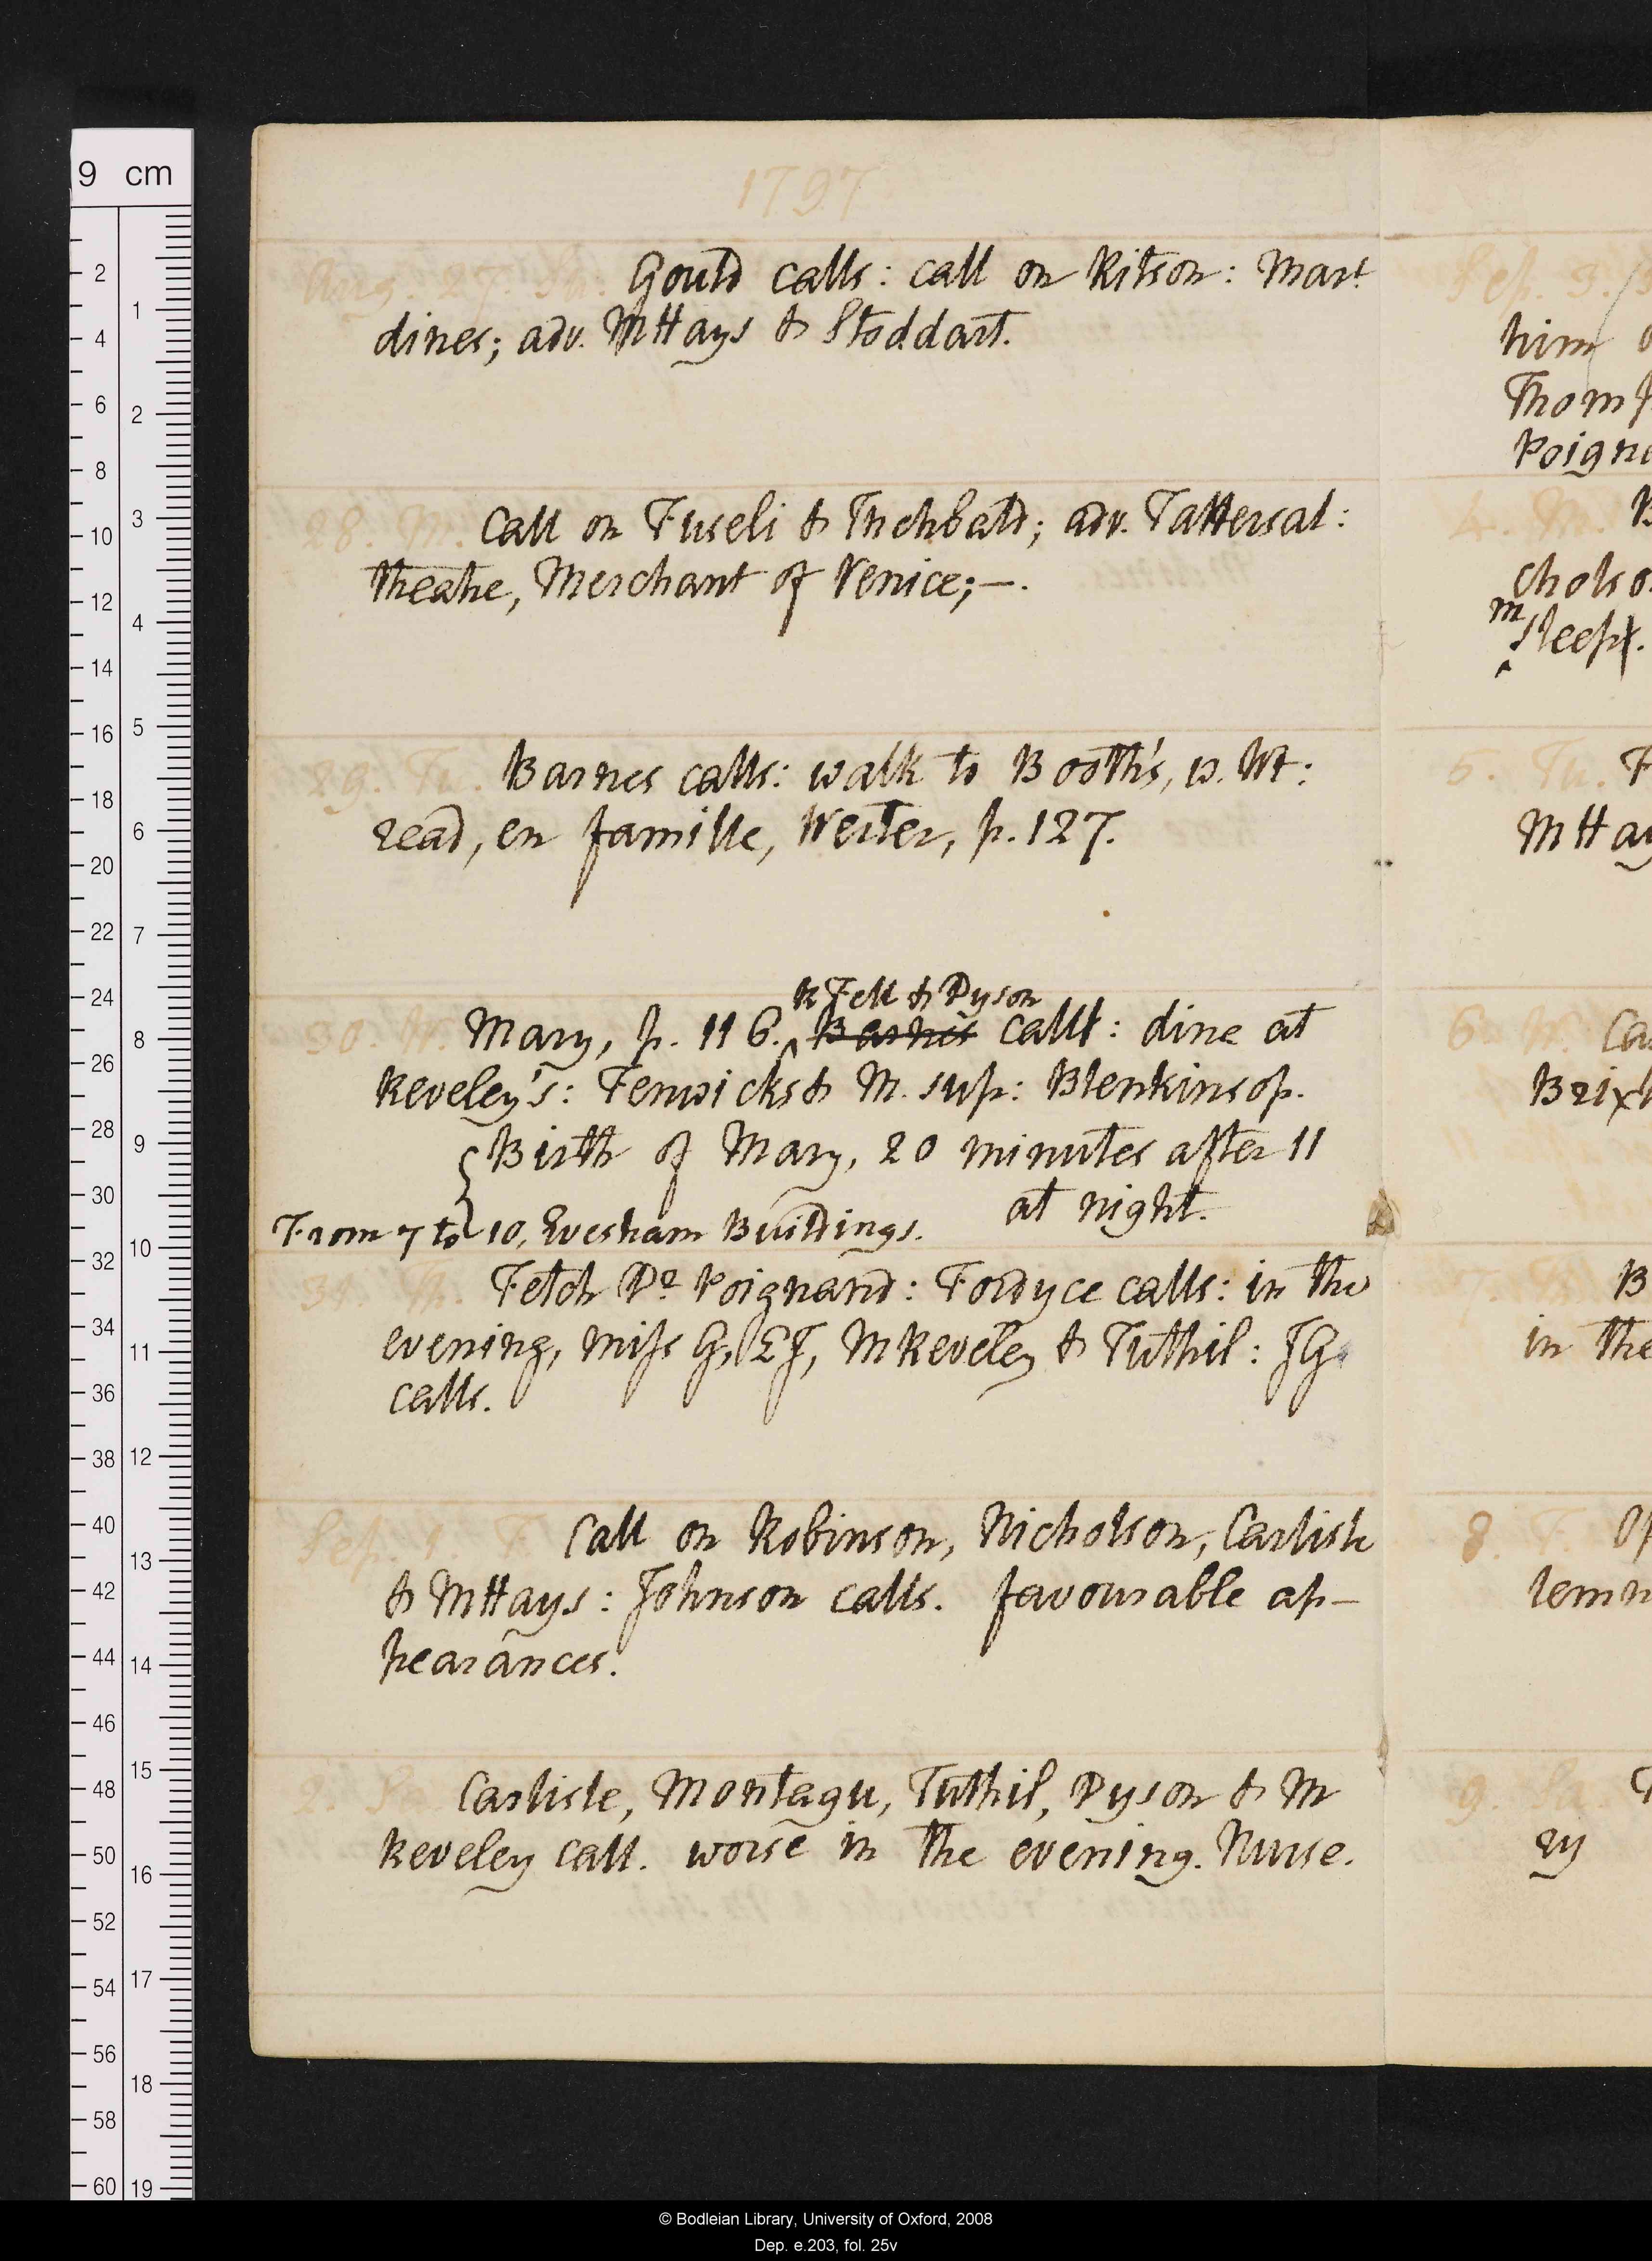 1797
Aug. 27. Su. Gould calls: call on Ritson: Mart
dines; adv. MHays & Stoddart.
28. M. Call on Fuseli & Inchbald; adv. Tattersal:
theatre, Merchant of Venice; —.
29. Tu. Barnes calls: walk to Booth's, w. Wt:
read, en famille, Werter, p. 127.
R Fell & Dyson
30. W. Mary, p. 116. Barnes call: dine at
Reveley's: Fenwicks & M. sup: Blenkinsop.
Birth of Mary, 20 minutes after 11
at night.
From 7 to 10, Evesham Buildings.
31. Th. Fetch Dr Poignand: Fordyce calls: in the
evening, miss G, EJ, MReveley & Tuthil: JG
calls.
Sep. 1. F. Call on Robinson, Nicholson, Carlisle
& MHays: Johnson calls. favourable ap-
pearances.
2. Sa. Carlisle, Montagu, Tuthil, Dyson & M
Reveley call. worse in the evening. Nurse.
Sep. 3.
him
Thom
Poign
4. M. B
cholso
m
sleep.
5. Tu. F
MHay
6. W. Ca
Brixt
B
in the
8. F. Op
lemn
9. Sa. T
ry
9 cm
2
4
6
8
10
12
14
16
18
20
22
24
26
28
30
32
34
36
38
40
42
44
46
48
50
52
54
56
58
60
1
2
3
4
5
6
7
8
9
10
11
12
13
14
15
16
17
18
19
© Bodleian Library, University of Oxford, 2008
Dep. e.203, fol. 25v